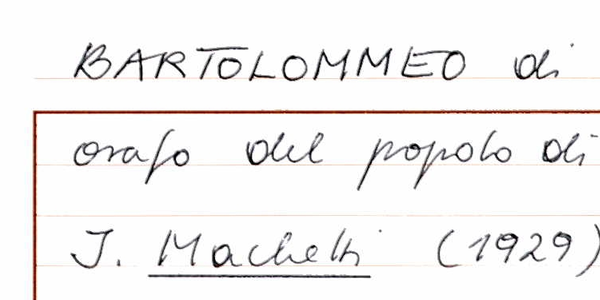 BARTOLOMMEO di
orafo del popolo di
I. Machetti (1929)